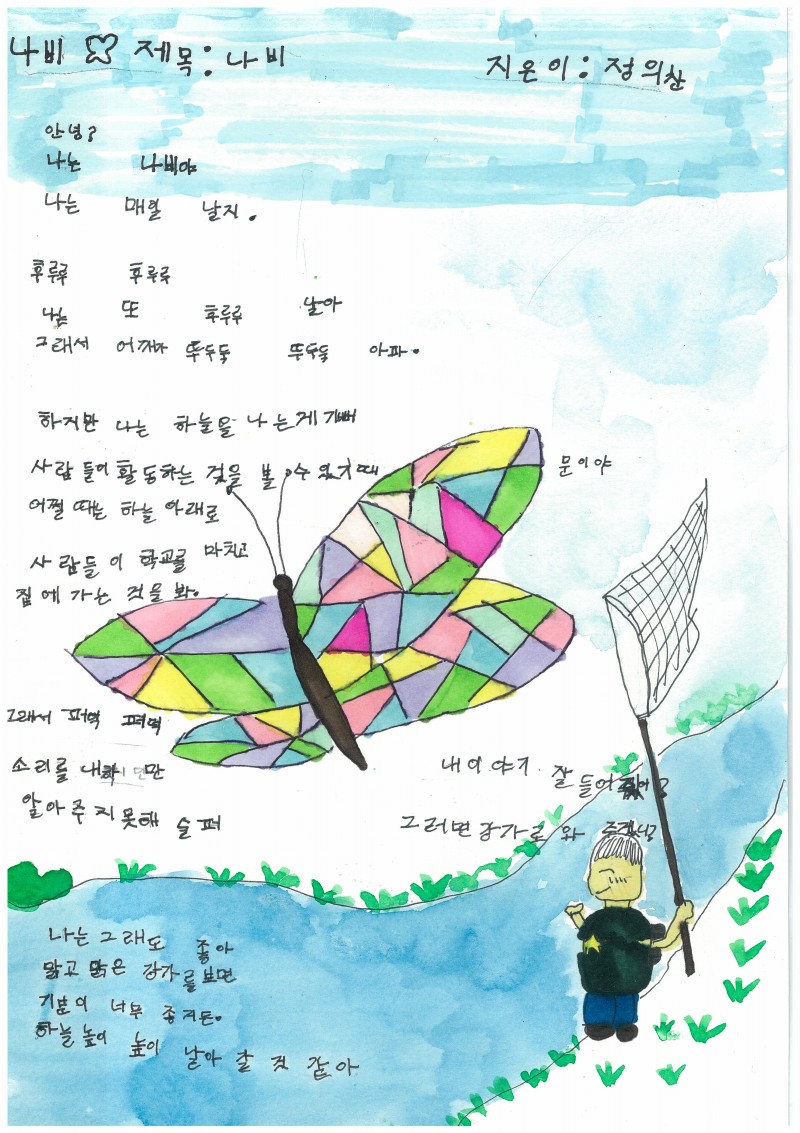 나비 제목: 나비
지은이: 정의찬
안녕?
나는 나비야
나는 매일 날지.
후루루 후루루
나는 또 후루루 날아
그래서 어깨가 뚜두둑 뚜두둑 아파.
하지만 나는 하늘을 나는게 기뻐
사람들이 활동하는 것을 볼 수 있기 때
문이야
어쩔 때는 하늘 아래로
사람들이 학교를 마치고
집에 가는 것을 봐.
그래서 퍼덕 퍼덕
소리를 내지만
알아주지 못해 슬퍼
내 이야기 잘 들어
그러면 강가로 와
나는 그래도 좋아
맑고 맑은 강가를 보면
기분이 너무 좋거든.
하늘 높이 높이 날아 갈 것 같아